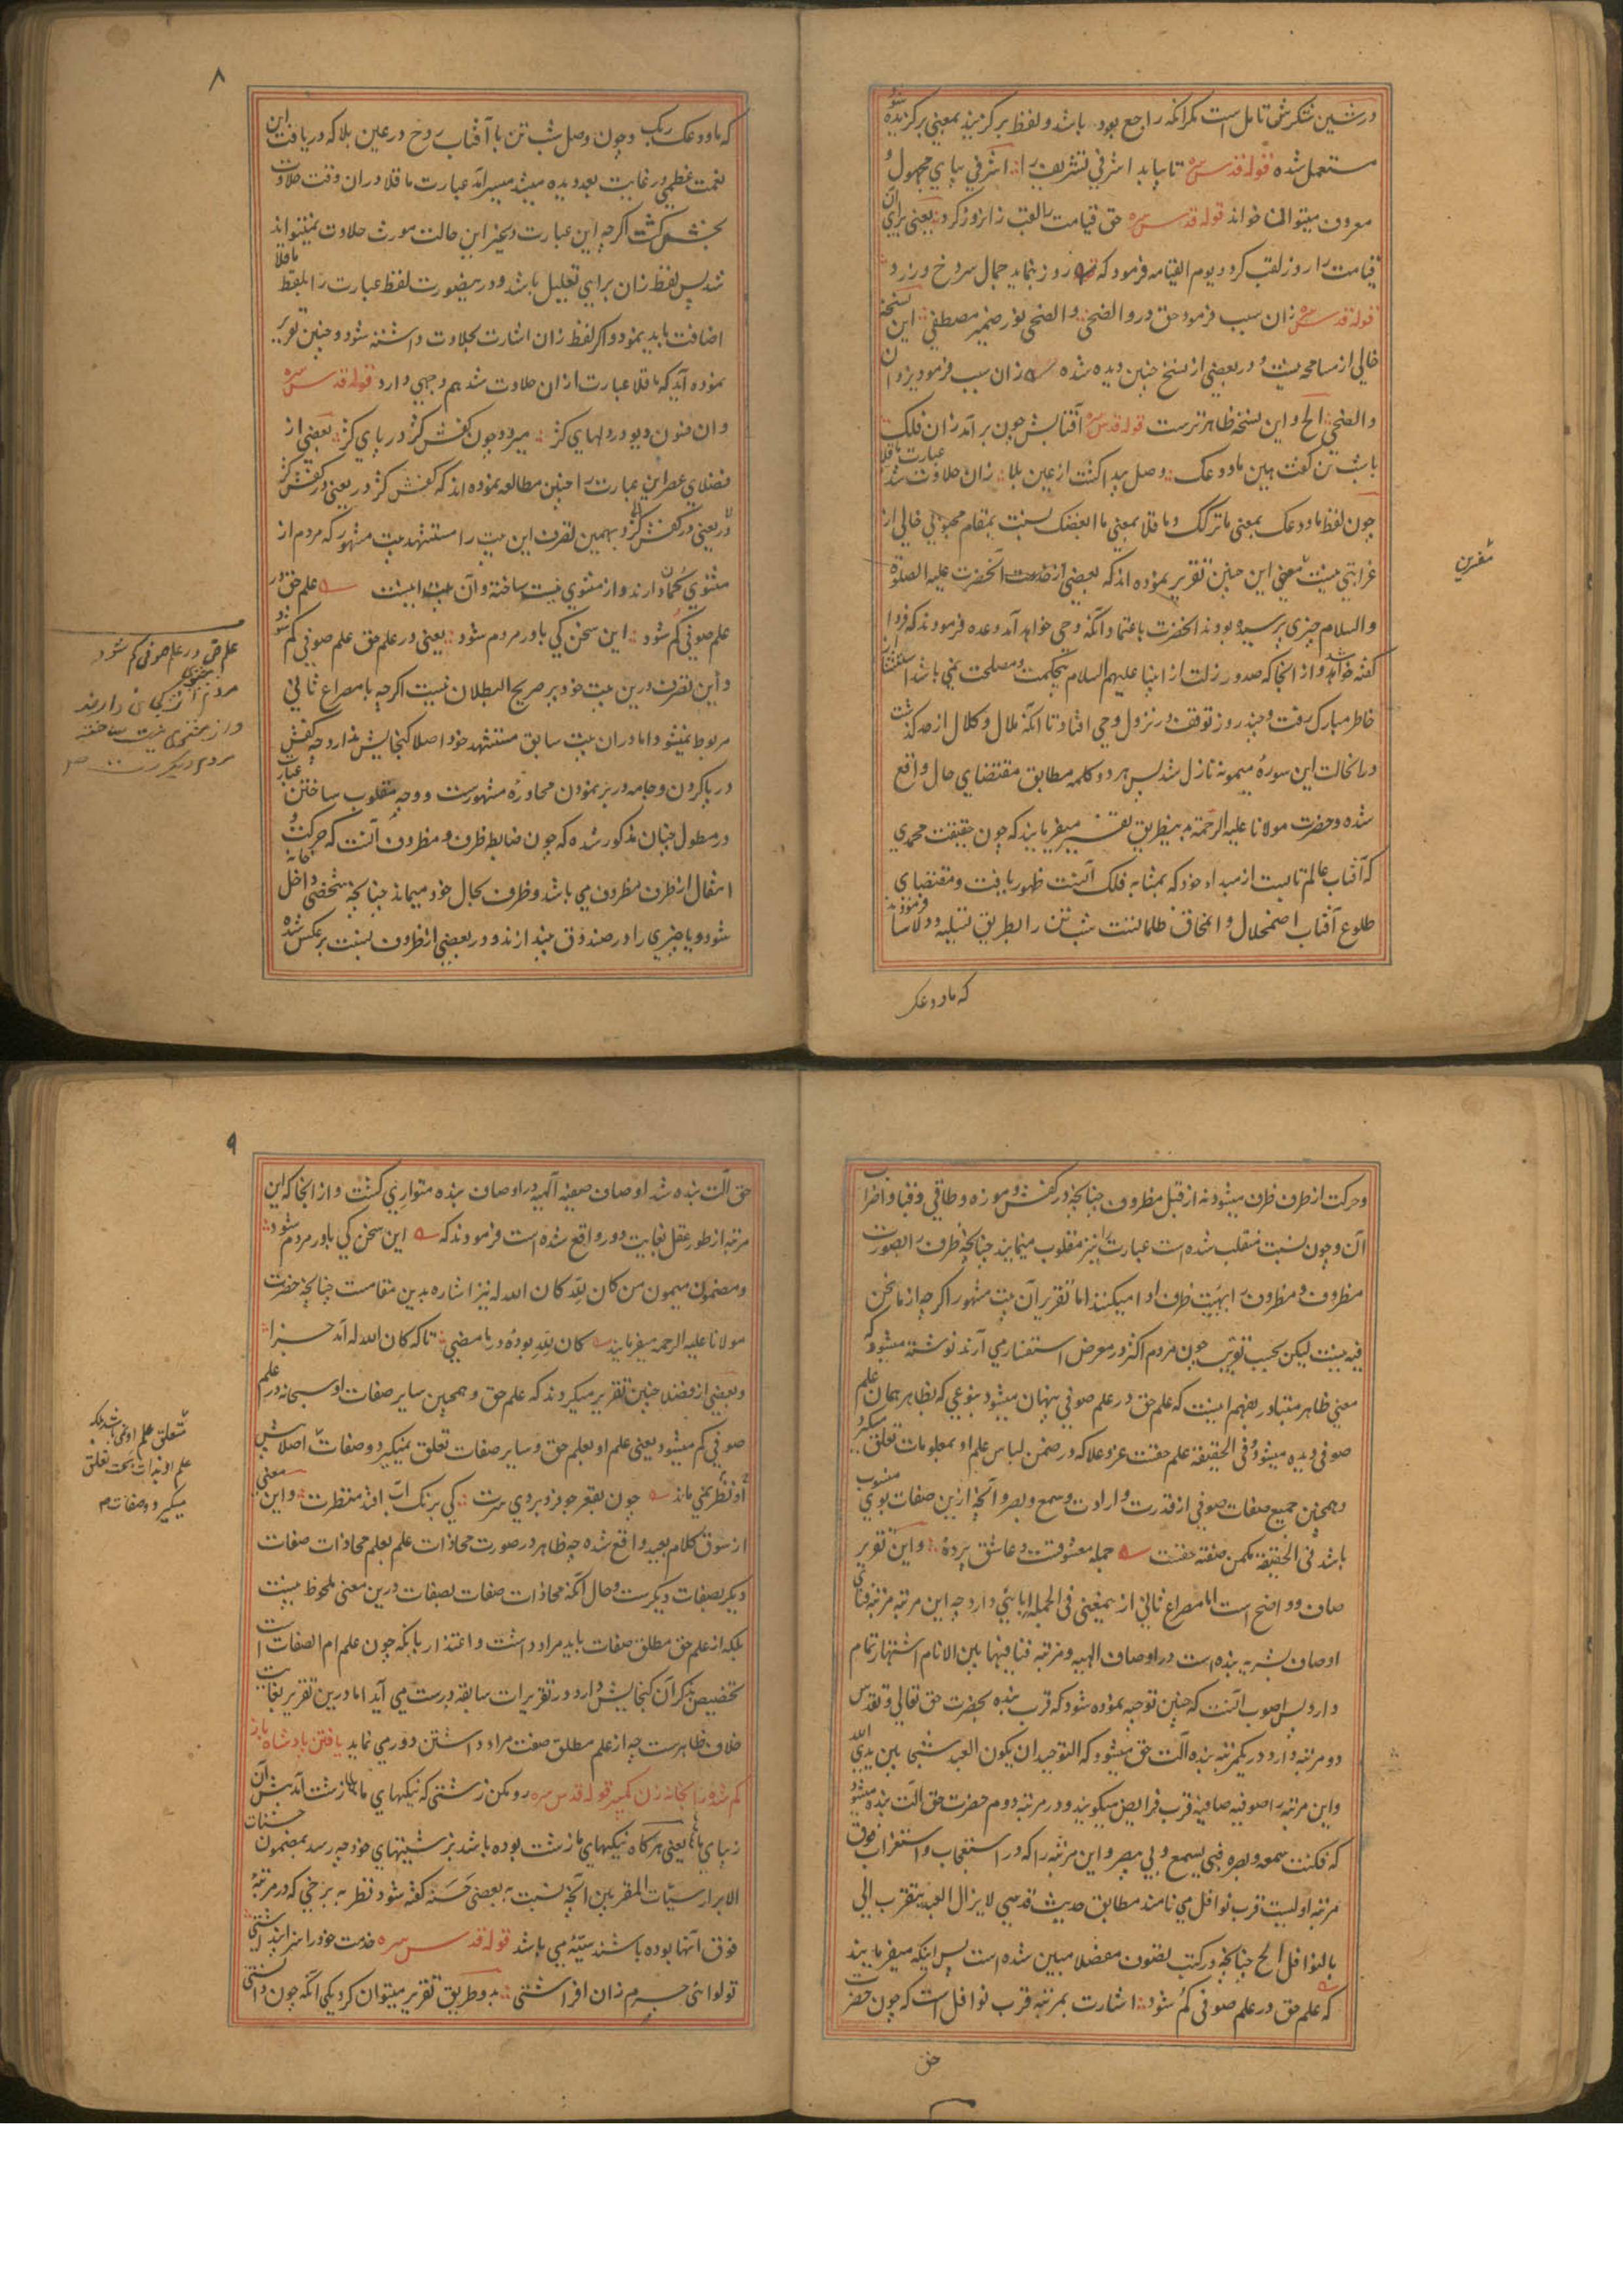 در شین شکرش تامل است مکر آنکه راجع بود باشد و لفظ بر کزیند بمعنی بر کزیده شود
مستعمل شده قوله قدس سره تا بیابد اشرفی تشریف را اشرفی بیای مجهول و
معروف میتوان خواند قوله قدس سره حق قیامت را لقب زان روز کرد یعنی برای آن
قیامت را روز لقب کرد و یوم القیامه فرمود که روز بنماید جمال سرخ و زرد
قوله قدس سره زان سبب فرمود حق در والضحی والضحی نور ضمیر مصطفی این نسخه
خالی از مسامحه نیست و در بعضی از نسخ چنین دیده شده زان سبب فرمود یزدان
والضحی الخ و این نسخه ظاهرترست قوله قدس سره آفتابش چون برآمد زان فلک
با شب تن کفت هین ما ودعک وصل پیدا کشت از عین بلا زان حلاوت شد عبارت ما قلا
چون لفظ ما ودعک بمعنی ما ترکک و ما قلا بمعنی ما ابغضک نسبت بمقام محبوبی خالی از
غرابتی نیست معنی این چنین تقریر نموده اند که بعضی از خدمت آنحضرت علیه الصلوة
والسلام چیزی پرسیده بودند آنحضرت باعتماد آنکه وحی خواهد آمد وعده فرمودند که فردا
کفته خواهد شد و از آنجا که صدور زلت از انبیا علیهم السلام بیحکمت و مصلحت نمی باشد استثنا از
خاطر مبارک رفت و چند روز توقف در نزول وحی افتاد تا آنکه ملال و کلال از حد کذشت
در آنحالت این سوره میمونه نازل شد پس هر دو کلمه مطابق مقتضای حال واقع
شده و حضرت مولانا علیه الرحمة بدینطریق تفسیر میفرمایند که چون حقیقت محمدی
که آفتاب عالم تابست از مبداء خود که بمثابه فلک آنست ظهور یافت و مقتضای
طلوع آفتاب اضمحلال و انمحاق ظلمانیت شب تن را بطریق تسلیه و دلاسا فرمودند
که ما ودعک
مفسرین
۸
که ما ودعک ربک و چون وصل شب تن با آفتاب روح در عین بلا که دریافت این
نعمت عظمی در غایت بعد دیده میشد میسر آمد عبارت ما قلا در آن وقت حلاوت
بخش کشت اکرچه این عبارت در غیر این حالت مورث حلاوت نمیتواند
شد پس لفظ زان برای تعلیل باشد و درینصورت لفظ عبارت را بلفظ ما قلا
اضافت باید نمود و اکر لفظ زان اشارت بحلاوت داشته شود و چنین تقریر
نموده آید که ما قلا عبارت از آن حلاوت شد هم وجهی دارد قوله قدس سره
وان فسون دیو در دلهای کژ میرود چون کفش کژ در پای کژ بعضی از
فضلای عصر این عبارت را چنین مطالعه نموده اند که کفش کژ در یعنی در کفش کژ
و بهمین تصرف این بیت را مستشهد بیت مشهور که مردم از
مثنوی کمان دارند و از مثنوی نیست ساخته و آن بیت اینست علم حق در
علم صوفی کم شود این سخن کی باور مردم شود یعنی در علم حق علم صوفی کم شود
و این تصرف درین بیت خود بر صریح البطلان نیست اکرچه با مصراع ثانی
مربوط نمیشود اما در آن بیت سابق مستشهد خود اصلا کنجایش ندارد چه کفش
در پا کردن و جامه در بر نمودن محاوره مشهورست و وجه مقلوب ساختن عبارت
در مطول چنان مذکور شده که چون ضابطه ظرف و مظروف آنست که حرکت و
انتقال از طرف مظروف می باشد و ظرف بحال خود میماند چنانچه شخصی داخل خانه
شود و یا چیزی را در صندوق میندازند و در بعضی از ظروف نسبت برعکس شده
علم حق در علم صوفی کم شود
مردم از مثنوی کمان دارند
و از مثنوی نیست ساخته
و حرکت از طرف ظرف میشود نه از قبل مظروف چنانچه در کفش و موزه و طاقی و قبا و اضراب
آن و چون نسبت منقلب شده است عبارت را نیز مقلوب مینمایند چنانچه ظرف را بصورت
مظروف و مظروف را بهیئت ظرف ادا میکنند اما تقریر آن بیت مشهور اکرچه از ما نحن
فیه نیست لیکن بحسب تقریب چون مردم اکثر در معرض استفسار می آرند نوشته میشود که
معنی ظاهر متبادر بفهم اینست که علم حق در علم صوفی پنهان میشود بنوعی که بظاهر همان علم
صوفی دیده میشود و فی الحقیقة علم حقست عز و علا که در ضمن لباس علم او بمعلومات تعلق میکیرد
و همچنین جمیع صفات صوفی از قدرت و ارادت و سمع و بصر و آنچه ازین صفات بوی منسوب
باشد فی الحقیقة مکمن صفة حقست جمله معشوقست و عاشق پرده و این تقریر
صاف و واضح است اما مصراع ثانی ازینمعنی فی الجمله ابائی دارد چه این مرتبه مرتبه فنای
اوصاف بشریه بنده است در اوصاف الهیه و مرتبه فنا فیها بین الانام اشتهار تمام
دارد پس اصوب آنست که چنین توجیه نموده شود که قرب بنده بحضرت حق تعالی و تقدس
دو مرتبه دارد در یکمرتبه بنده آلت حق میشود که التوحید ان یکون العبد شبحا بین یدی الله
و این مرتبه را صوفیه صافیه قرب فرایض میکویند و در مرتبه دوم حضرت حق آلت بنده میشود
که فکنت سمعه و بصره فبی یسمع و بی یبصر و این مرتبه را که در استعجاب و استغراب فوق
مرتبه اولیست قرب نوافل می نامند مطابق حدیث قدسی لا یزال العبد یتقرب الی
بالنوافل الخ چنانچه در کتب تصوف مفصلا مبین شده است پس اینکه میفرمایند
که علم حق در علم صوفی کم شود اشارت بمرتبه قرب نوافل است که چون حضرت
حق
۹
حق آلت بنده شد اوصاف صفیه الهیه در اوصاف بنده متواری کشت و از آنجا که این
مرتبه از طور عقل بغایت دور واقع شده است فرمودند که این سخن کی باور مردم شود
و مضمون میمون من کان لله کان الله له نیز اشاره بدین مقامست چنانچه حضرت
مولانا علیه الرحمه میفرمایند کان لله بوده در ما مضی تا که کان الله له آمد جزا
و بعضی از فضلا چنین تقریر میکردند که علم حق و همچنین سایر صفات او سبحانه در علم
صوفی کم میشود یعنی علم او بعلم حق و سایر صفات تعلق میکیرد و صفات اصلا پیش
او نظر نمی ماند چون بقعر جو فرو بردی سرت کی برنک آب افتد منظرت و این معنی
از سوق کلام بعید واقع شده چه ظاهر در صورت محاذات علم بعلم محاذات صفات
دیکر بصفات دیکرست و حال آنکه محاذات صفات بصفات درین معنی ملحوظ نیست
بلکه از علم حق مطلق صفات باید مراد داشت و اعتذار بانکه چون علم ام الصفات است
تخصیص بذکر آن کنجایش دارد در تقریرات سابقه درست می آید اما درین تقریر بغایت
خلاف ظاهرست چه از علم مطلق صفت مراد داشتن دور می نماید یافتن پادشاه باز
کم شده را بخانه زن کمپیر قوله قدس سره رو مکن زشتی که نیکیهای ما زشت آمد پیش آن
زیبای ما یعنی هر کاه نیکیهای ما زشت بوده باشد بزشتیهای خود چه رسد بمضمون حسنات
الابرار سیئات المقربین آنچه نسبت به بعضی حسنه کفته شود نظر به برخی که در مرتبه
فوق آنها بوده باشند سیئه می باشد قوله قدس سره خدمت خود را سزا پنداشتی
تو لوائی جرم زان افراشتی بدو طریق تقریر میتوان کرد یکی آنکه چون دانستی
متعلق علم او نمی باشد بلکه
علم او بذات بحت تعلق
میکیرد و صفات